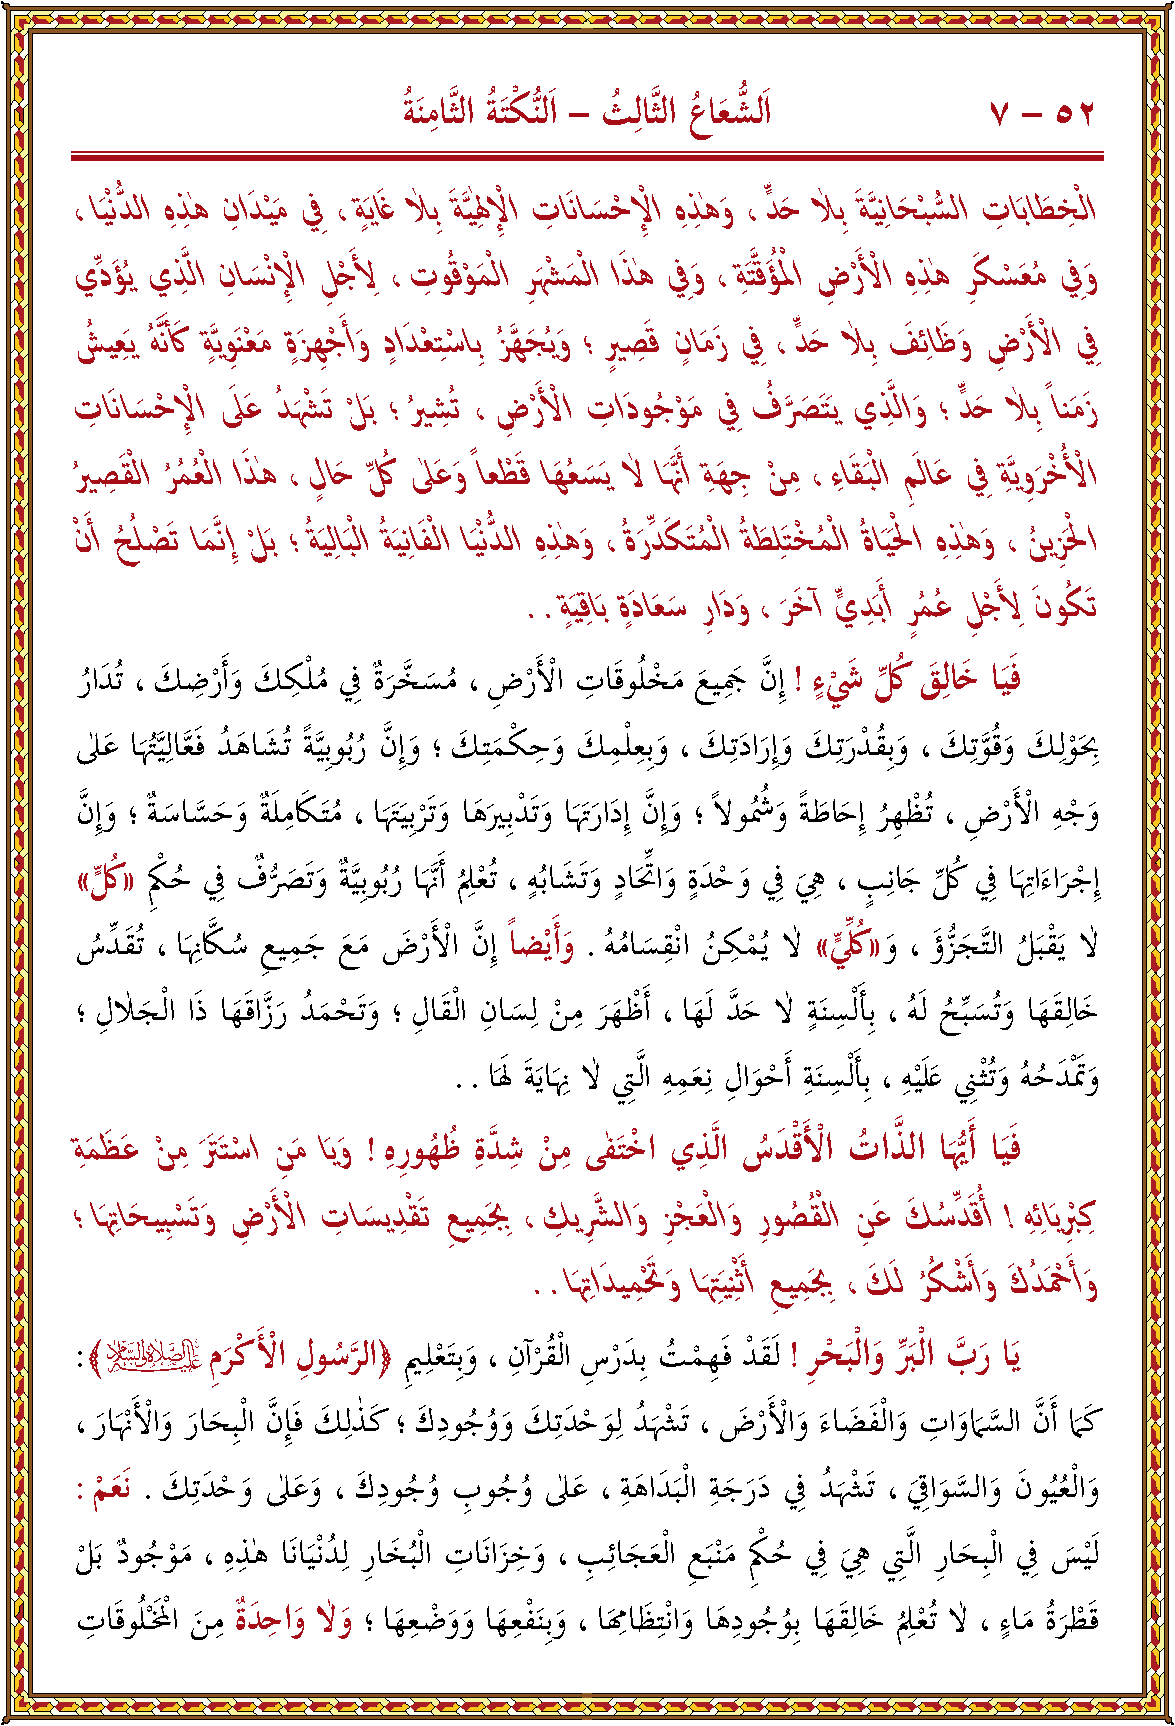 ٥٢ – ٧ اَلشُّعَاعُ الثَّالِثُ – اَلنُّكْتَةُ الثَّامِنَةُ
الْخِطَابَاتِ السُّبْحَانِيَّةَ بِلاٰ حَدٍّ ، وَهٰذِهِ الْإِحْسَانَاتِ الْإِلٰهِيَّةَ بِلاٰ غَايَةٍ ، فِي مَيْدَانِ هٰذِهِ الدُّنْيَا ،
وَفِي مُعَسْكَرِ هٰذِهِ الْأَرْضِ الْمُؤَقَّتَةِ ، وَفِي هٰذَا الْمَشْهَرِ الْمَوْقُوتِ ، لِأَجْلِ الْإِنْسَانِ الَّذِي يُؤَدِّي
فِي الْأَرْضِ وَظَائِفَ بِلاٰ حَدٍّ ، فِي زَمَانٍ قَصِيرٍ ؛ وَيُجَهَّزُ بِاسْتِعْدَادٍ وَأَجْهِزَةٍ مَعْنَوِيَّةٍ كَأَنَّهُ يَعِيشُ
زَمَناً بِلاٰ حَدٍّ ؛ وَالَّذِي يَتَصَرَّفُ فِي مَوْجُودَاتِ الْأَرْضِ ، تُشِيرُ ؛ بَلْ تَشْهَدُ عَلَى الْإِحْسَانَاتِ
الْأُخْرَوِيَّةِ فِي عَالَمِ الْبَقَاءِ ، مِنْ جِهَةِ أَنَّهَا لاٰ يَسَعُهَا قَطْعاً وَعَلٰى كُلِّ حَالٍ ، هٰذَا الْعُمُرُ الْقَصِيرُ
الْحَزِينُ ، وَهٰذِهِ الْحَيَاةُ الْمُخْتَلِطَةُ الْمُتَكَدِّرَةُ ، وَهٰذِهِ الدُّنْيَا الْفَانِيَةُ الْبَالِيَةُ ؛ بَلْ إِنَّمَا تَصْلُحُ أَنْ
تَكُونَ لِأَجْلِ عُمُرٍ أَبَدِيٍّ آخَرَ ، وَدَارِ سَعَادَةٍ بَاقِيَةٍ . .
فَيَا خَالِقَ كُلِّ شَيْءٍ ! إِنَّ جَمِيعَ مَخْلُوقَاتِ الْأَرْضِ ، مُسَخَّرَةٌ فِي مُلْكِكَ وَأَرْضِكَ ، تُدَارُ
بِحَوْلِكَ وَقُوَّتِكَ ، وَبِقُدْرَتِكَ وَإِرَادَتِكَ ، وَبِعِلْمِكَ وَحِكْمَتِكَ ؛ وَإِنَّ رُبُوبِيَّةً تُشَاهَدُ فَعَّالِيَّتُهَا عَلٰى
وَجْهِ الْأَرْضِ ، تُظْهِرُ إِحَاطَةً وَشُمُولاً ؛ وَإِنَّ إِدَارَتَهَا وَتَدْبِيرَهَا وَتَرْبِيَتَهَا ، مُتَكَامِلَةٌ وَحَسَّاسَةٌ ؛ وَإِنَّ
إِجْرَاءَاتِهَا فِي كُلِّ جَانِبٍ ، هِيَ فِي وَحْدَةٍ وَاتِّحَادٍ وَتَشَابُهٍ ، تُعْلِمُ أَنَّهَا رُبُوبِيَّةٌ وَتَصَرُّفٌ فِي حُكْمِ «كُلٍّ»
لاٰ يَقْبَلُ التَّجَزُّؤَ ، وَ«كُلِّيٍّ» لاٰ يُمْكِنُ انْقِسَامُهُ . وَأَيْضاً إِنَّ الْأَرْضَ مَعَ جَمِيعِ سُكَّانِهَا ، تُقَدِّسُ
خَالِقَهَا وَتُسَبِّحُ لَهُ ، بِأَلْسِنَةٍ لاٰ حَدَّ لَهَا ، أَظْهَرَ مِنْ لِسَانِ الْقَالِ ؛ وَتَحْمَدُ رَزَّاقَهَا ذَا الْجَلاٰلِ ؛
وَتَمْدَحُهُ وَتُثْنِي عَلَيْهِ ، بِأَلْسِنَةِ أَحْوَالِ نِعَمِهِ الَّتِي لاٰ نِهَايَةَ لَهَا . .
فَيَا أَيُّهَا الذَّاتُ الْأَقْدَسُ الَّذِي اخْتَفٰى مِنْ شِدَّةِ ظُهُورِهِ ! وَيَا مَنِ اسْتَتَرَ مِنْ عَظَمَةِ
كِبْرِيَائِهِ ! أُقَدِّسُكَ عَنِ الْقُصُورِ وَالْعَجْزِ وَالشَّرِيكِ ، بِجَمِيعِ تَقْدِيسَاتِ الْأَرْضِ وَتَسْبِيحَاتِهَا ؛
وَأَحْمَدُكَ وَأَشْكُرُ لَكَ ، بِجَمِيعِ أَثْنِيَتِهَا وَتَحْمِيدَاتِهَا . .
يَا رَبَّ الْبَرِّ وَالْبَحْرِ ! لَقَدْ فَهِمْتُ بِدَرْسِ الْقُرْآنِ ، وَبِتَعْلِيمِ ﴿الرَّسُولِ الْأَكْرَمِ عليه الصلاة والسلام﴾ :
كَمَا أَنَّ السَّمٰاوَاتِ وَالْفَضَاءَ وَالْأَرْضَ ، تَشْهَدُ لِوَحْدَتِكَ وَوُجُودِكَ ؛ كَذٰلِكَ فَإِنَّ الْبِحَارَ وَالْأَنْهَارَ ،
وَالْعُيُونَ وَالسَّوَاقِيَ ، تَشْهَدُ فِي دَرَجَةِ الْبَدَاهَةِ ، عَلٰى وُجُوبِ وُجُودِكَ ، وَعَلٰى وَحْدَتِكَ . نَعَمْ :
لَيْسَ فِي الْبِحَارِ الَّتِي هِيَ فِي حُكْمِ مَنْبَعِ الْعَجَائِبِ ، وَخِزَانَاتِ الْبُخَارِ لِدُنْيَانَا هٰذِهِ ، مَوْجُودٌ بَلْ
قَطْرَةُ مَاءٍ ، لاٰ تُعْلِمُ خَالِقَهَا بِوُجُودِهَا وَانْتِظَامِهَا ، وَبِنَفْعِهَا وَوَضْعِهَا ؛ وَلاٰ وَاحِدَةٌ مِنَ الْمَخْلُوقَاتِ